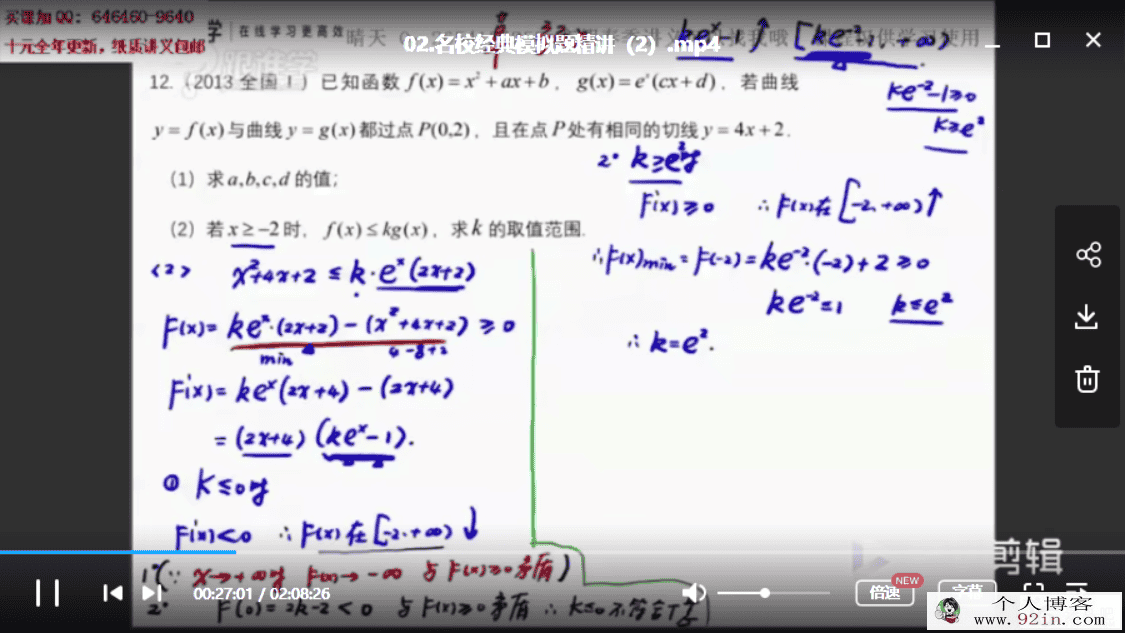 买课加QQ：646460-9640
十元全年更新，纸质讲义包邮
学 | 在线学习更高效
晴天
02.名校经典模拟题精讲（2）.mp4
习使用
keˣ-1↑ [ke⁻²-1,+∞)
12.（2013 全国 I ）已知函数 f(x)=x²+ax+b，g(x)=eˣ(cx+d)，若曲线
ke⁻²-1≥0
k≥e²
y=f(x)与曲线y=g(x)都过点P(0,2)，且在点P处有相同的切线y=4x+2.
（1）求a,b,c,d的值；
（2）若x≥-2时，f(x)≤kg(x)，求k的取值范围.
<2> x²+4x+2≤k·eˣ(2x+2)
F(x)=keˣ·(2x+2)-(x²+4x+2)≥0
min 4-8+2
F'(x)=keˣ(2x+4)-(2x+4)
=(2x+4)(keˣ-1).
① k≤0时
F'(x)<0 ∴F(x)在[-2,+∞)↓
1°(∵ x→+∞时 F(x)→-∞ 与F(x)≥0矛盾)
2° F(0)=2k-2<0 与F(x)≥0矛盾 ∴k≤0不符合
2° k≥e²时
F'(x)≥0 ∴F(x)在[-2,+∞)↑
∴F(x)min=F(-2)=ke⁻²·(-2)+2≥0
ke⁻²≤1 k≤e²
∴k=e².
剪辑
00:27:01 / 02:08:26
倍速
NEW
字幕
个人博客
www.92in.com